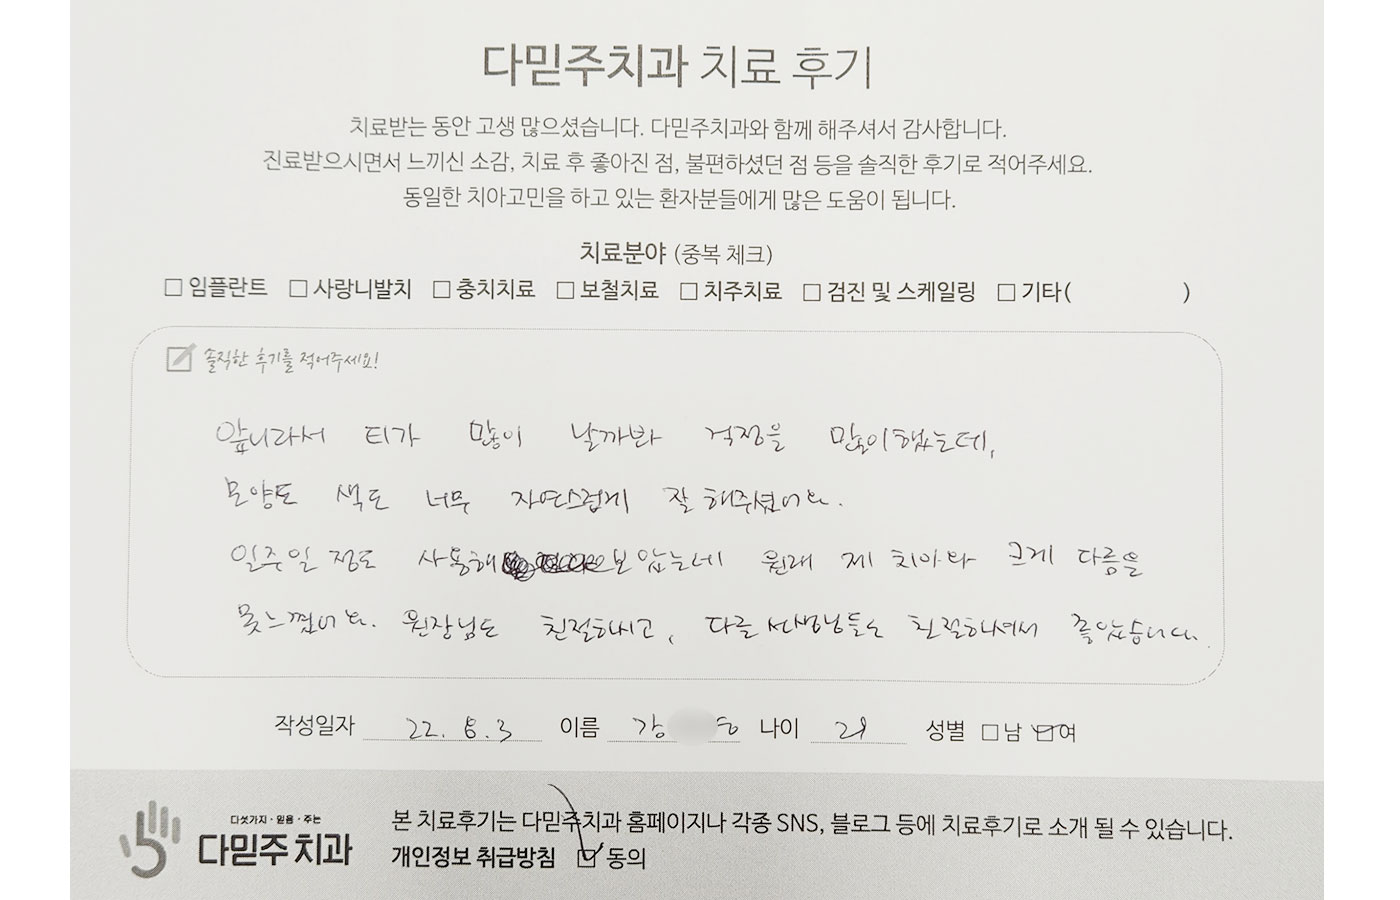 다믿주치과 치료 후기
치료받는 동안 고생 많으셨습니다. 다믿주치과와 함께 해주셔서 감사합니다.
진료받으시면서 느끼신 소감, 치료 후 좋아진 점, 불편하셨던 점 등을 솔직한 후기로 적어주세요.
동일한 치아고민을 하고 있는 환자분들에게 많은 도움이 됩니다.
치료분야 (중복 체크)
□ 임플란트 □ 사랑니발치 □ 충치치료 □ 보철치료 □ 치주치료 □ 검진 및 스케일링 □ 기타( )
솔직한 후기를 적어주세요!
앞니라서 티가 많이 날까봐 걱정을 많이했는데,
모양도 색도 너무 자연스럽게 잘 해주셨어요.
일주일 정도 사용해 보았는데 원래 제 치아와 크게 다름을
못느꼈어요. 원장님도 친절하시고, 다른 선생님들도 친절하셔서 좋았습니다.
작성일자 22. 8. 3 이름 강 나이 성별 □남 ☑여
다섯가지·믿음·주는
다믿주치과
본 치료후기는 다믿주치과 홈페이지나 각종 SNS, 블로그 등에 치료후기로 소개 될 수 있습니다.
개인정보 취급방침 ☑ 동의